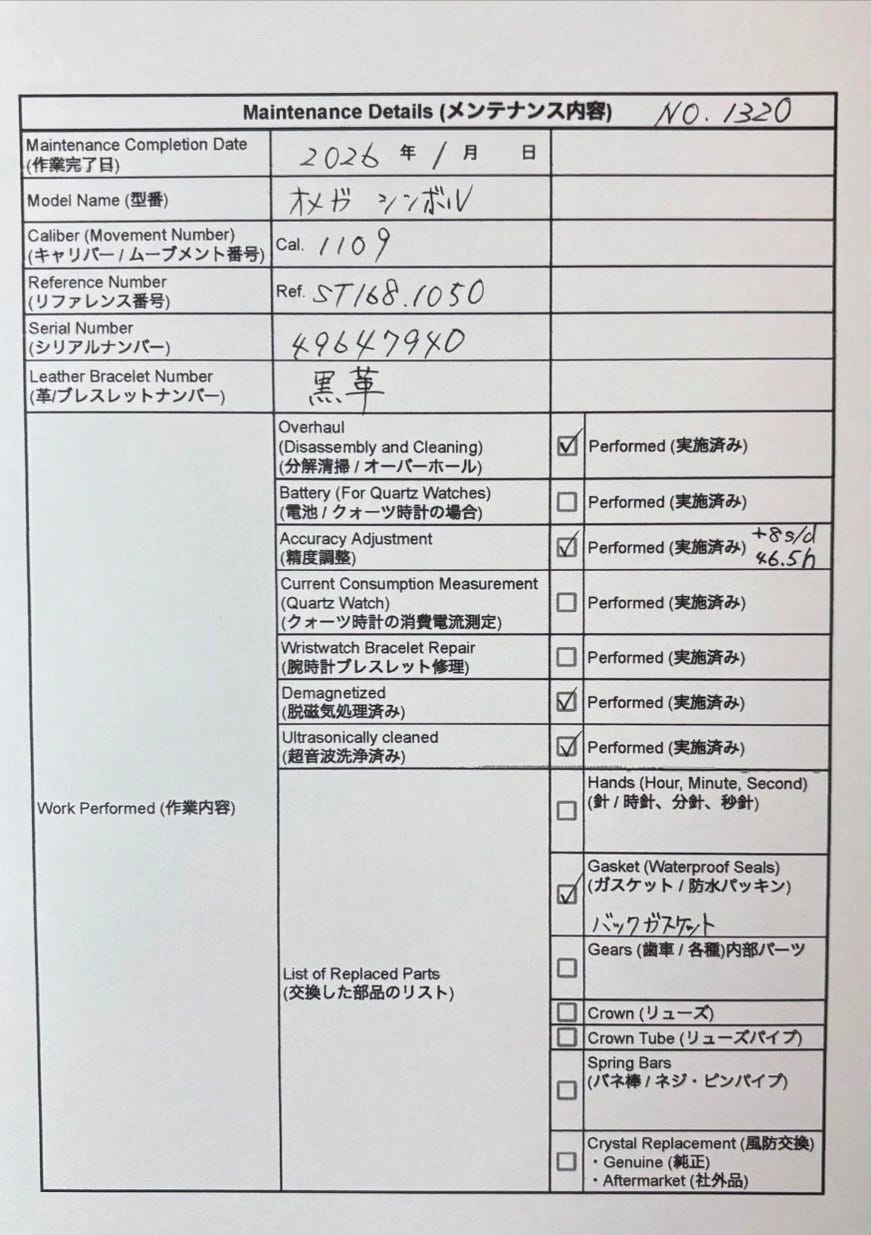 Maintenance Details (メンテナンス内容) NO. 1320
Maintenance Completion Date
(作業完了日)
2026 年 1 月 日
Model Name (型番)
オメガ シンボル
Caliber (Movement Number)
(キャリバー / ムーブメント番号)
Cal. 1109
Reference Number
(リファレンス番号)
Ref. ST168.1050
Serial Number
(シリアルナンバー)
49647940
Leather Bracelet Number
(革/ブレスレットナンバー)
黒革
Work Performed (作業内容)
Overhaul
(Disassembly and Cleaning)
(分解清掃 / オーバーホール)
Performed (実施済み)
Battery (For Quartz Watches)
(電池 / クォーツ時計の場合)
Performed (実施済み)
Accuracy Adjustment
(精度調整)
Performed (実施済み)
+8s/d
46.5h
Current Consumption Measurement
(Quartz Watch)
(クォーツ時計の消費電流測定)
Performed (実施済み)
Wristwatch Bracelet Repair
(腕時計ブレスレット修理)
Performed (実施済み)
Demagnetized
(脱磁気処理済み)
Performed (実施済み)
Ultrasonically cleaned
(超音波洗浄済み)
Performed (実施済み)
List of Replaced Parts
(交換した部品のリスト)
Hands (Hour, Minute, Second)
(針 / 時針、分針、秒針)
Gasket (Waterproof Seals)
(ガスケット / 防水パッキン)
バックガスケット
Gears (歯車 / 各種)内部パーツ
Crown (リューズ)
Crown Tube (リューズパイプ)
Spring Bars
(バネ棒 / ネジ・ピンパイプ)
Crystal Replacement (風防交換)
・Genuine (純正)
・Aftermarket (社外品)